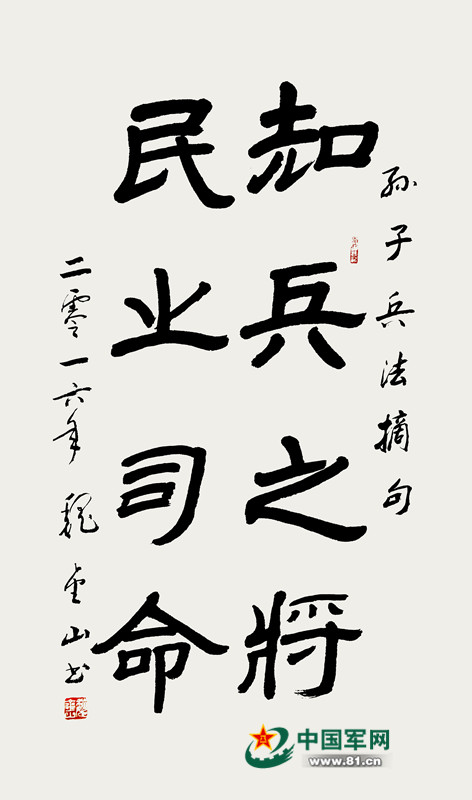 孫子兵法摘句
知兵之將
民之司命
二零一六年 魏金山书
中国军网
www.81.cn